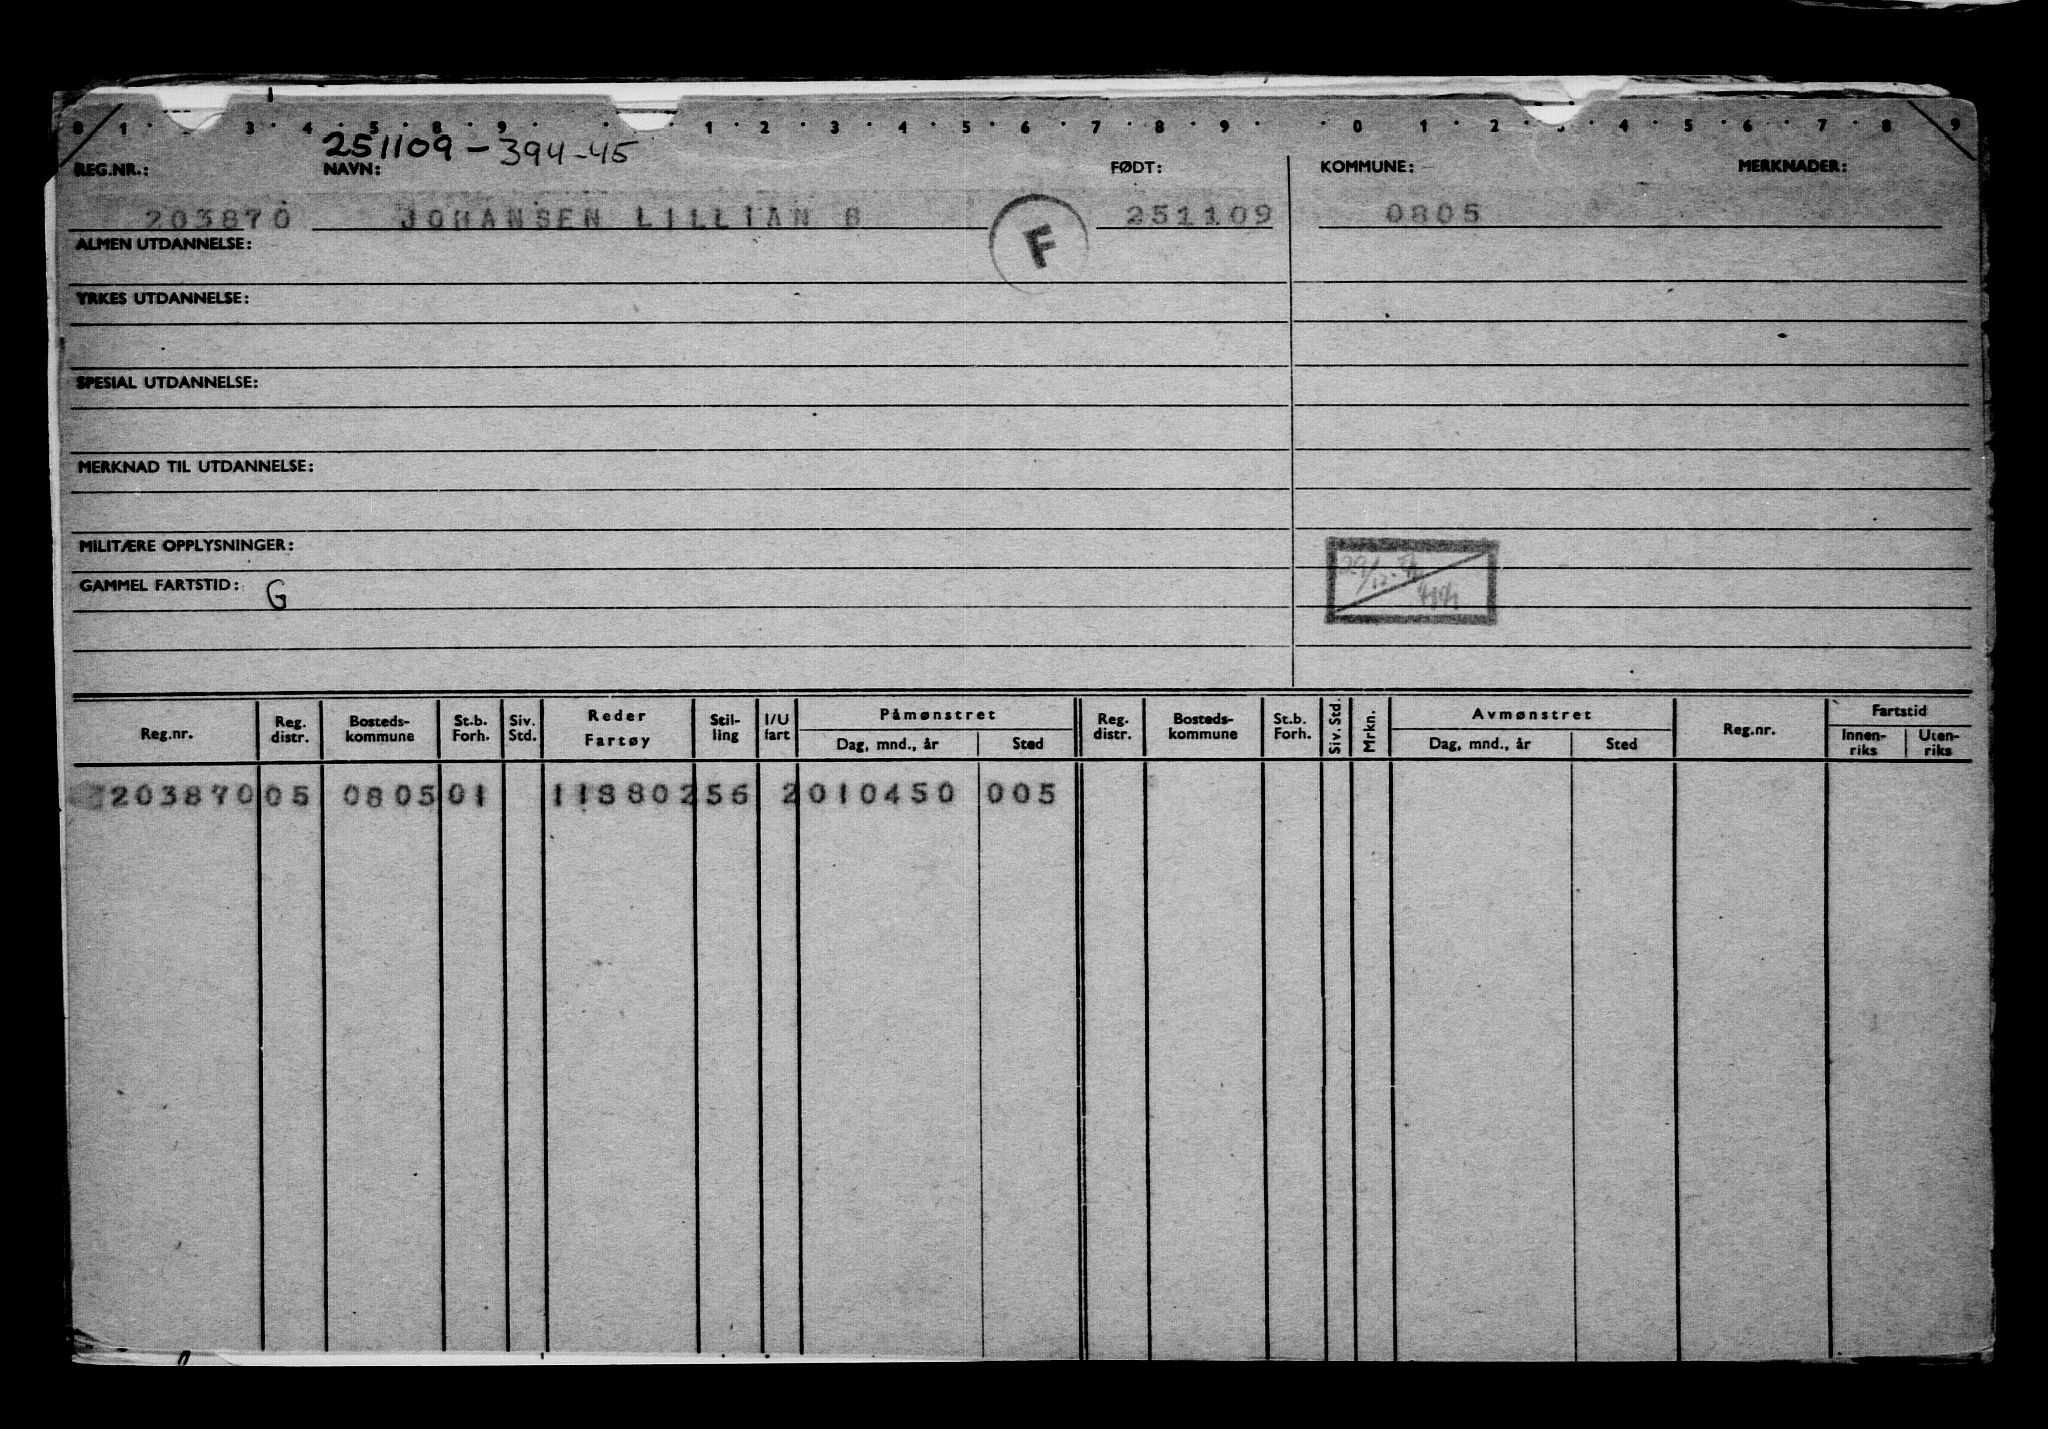 0 1 3 4 5 8 9 1 2 3 4 5 6 7 8 9 0 1 2 3 4 5 6 7 8 9
251109 - 394-45
REG.NR.: NAVN: FØDT: KOMMUNE: MERKNADER:
203870 JOHANSEN LILLIAN B 251109 0805
F
ALMEN UTDANNELSE:
YRKES UTDANNELSE:
SPESIAL UTDANNELSE:
MERKNAD TIL UTDANNELSE:
MILITÆRE OPPLYSNINGER:
GAMMEL FARTSTID: G
Reg.nr. Reg. distr. Bosteds-kommune St.b. Forh. Siv. Std. Reder Fartøy Stil-ling I/U fart Påmønstret Dag, mnd., år Sted Reg. distr. Bosteds-kommune St.b. Forh. Siv. Std. Mrkn. Avmønstret Dag, mnd., år Sted Reg.nr. Fartstid Innen-riks Uten-riks
203870 05 0805 01 118802 56 2 010450 005